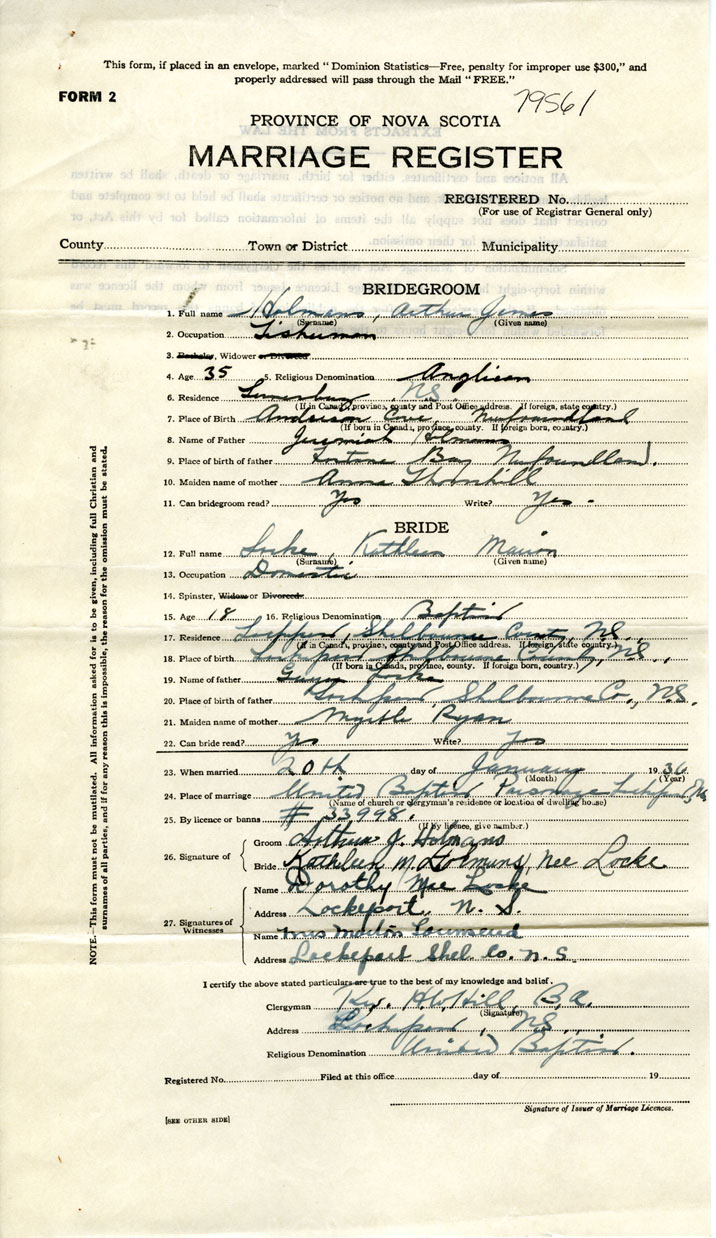 This form, if placed in an envelope, marked “Dominion Statistics—Free, penalty for improper use $300,” and
properly addressed will pass through the Mail “FREE.”
FORM 2
79561
PROVINCE OF NOVA SCOTIA
MARRIAGE REGISTER
REGISTERED No.
(For use of Registrar General only)
County Town or District Municipality
BRIDEGROOM
1. Full name Holmans, Arthur James
(Surname) (Given name)
2. Occupation Fisherman
3. Bachelor, Widower or Divorced
4. Age 35 5. Religious Denomination Anglican
6. Residence Lunenburg, N.S.
(If in Canada, province, county and Post Office address. If foreign, state country.)
7. Place of Birth Anderson Cove, Newfoundland
(If born in Canada, province, county. If foreign born, country.)
8. Name of Father Jeremiah Holmans
9. Place of birth of father Fortune Bay Newfoundland.
10. Maiden name of mother Anna Thornhill
11. Can bridegroom read? Yes Write? Yes -
BRIDE
12. Full name Locke, Kathleen Marion
(Surname) (Given name)
13. Occupation Domestic
14. Spinster, Widow or Divorced
15. Age 18 16. Religious Denomination Baptist
17. Residence Lockeport, Shelbourne County, N.S.
(If in Canada, province, county and Post Office address. If foreign, state country.)
18. Place of birth Lockeport Shelbourne County, N.S.,
(If born in Canada, province, county. If foreign born, country.)
19. Name of father Locke
20. Place of birth of father Lockeport Shelbourne Co., N.S.
21. Maiden name of mother Myrtle Ryan
22. Can bride read? Yes Write? Yes
23. When married 20th day of January 1936
(Month) (Year)
24. Place of marriage United Baptist Parsonage Lockeport, N.S.
(Name of church or clergyman's residence or location of dwelling house)
25. By licence or banns # 33998.
(If by licence, give number.)
26. Signature of
Groom Arthur J. Holmans
Bride Kathleen M. Holmans, nee Locke
27. Signatures of Witnesses
Name Dorothy Mae Locke
Address Lockeport, N. S.
Name Mrs Townsend
Address Lockeport Shel. Co. N.S.
I certify the above stated particulars are true to the best of my knowledge and belief.
Clergyman Rev. H.W. Hill, B.A.
(Signature)
Address Lockeport, N.S.
Religious Denomination United Baptist.
Registered No. Filed at this office day of 19
Signature of Issuer of Marriage Licences.
[SEE OTHER SIDE]
NOTE.—This form must not be mutilated. All information asked for is to be given, including full Christian and
surnames of all parties, and if for any reason this is impossible, the reason for the omission must be stated.